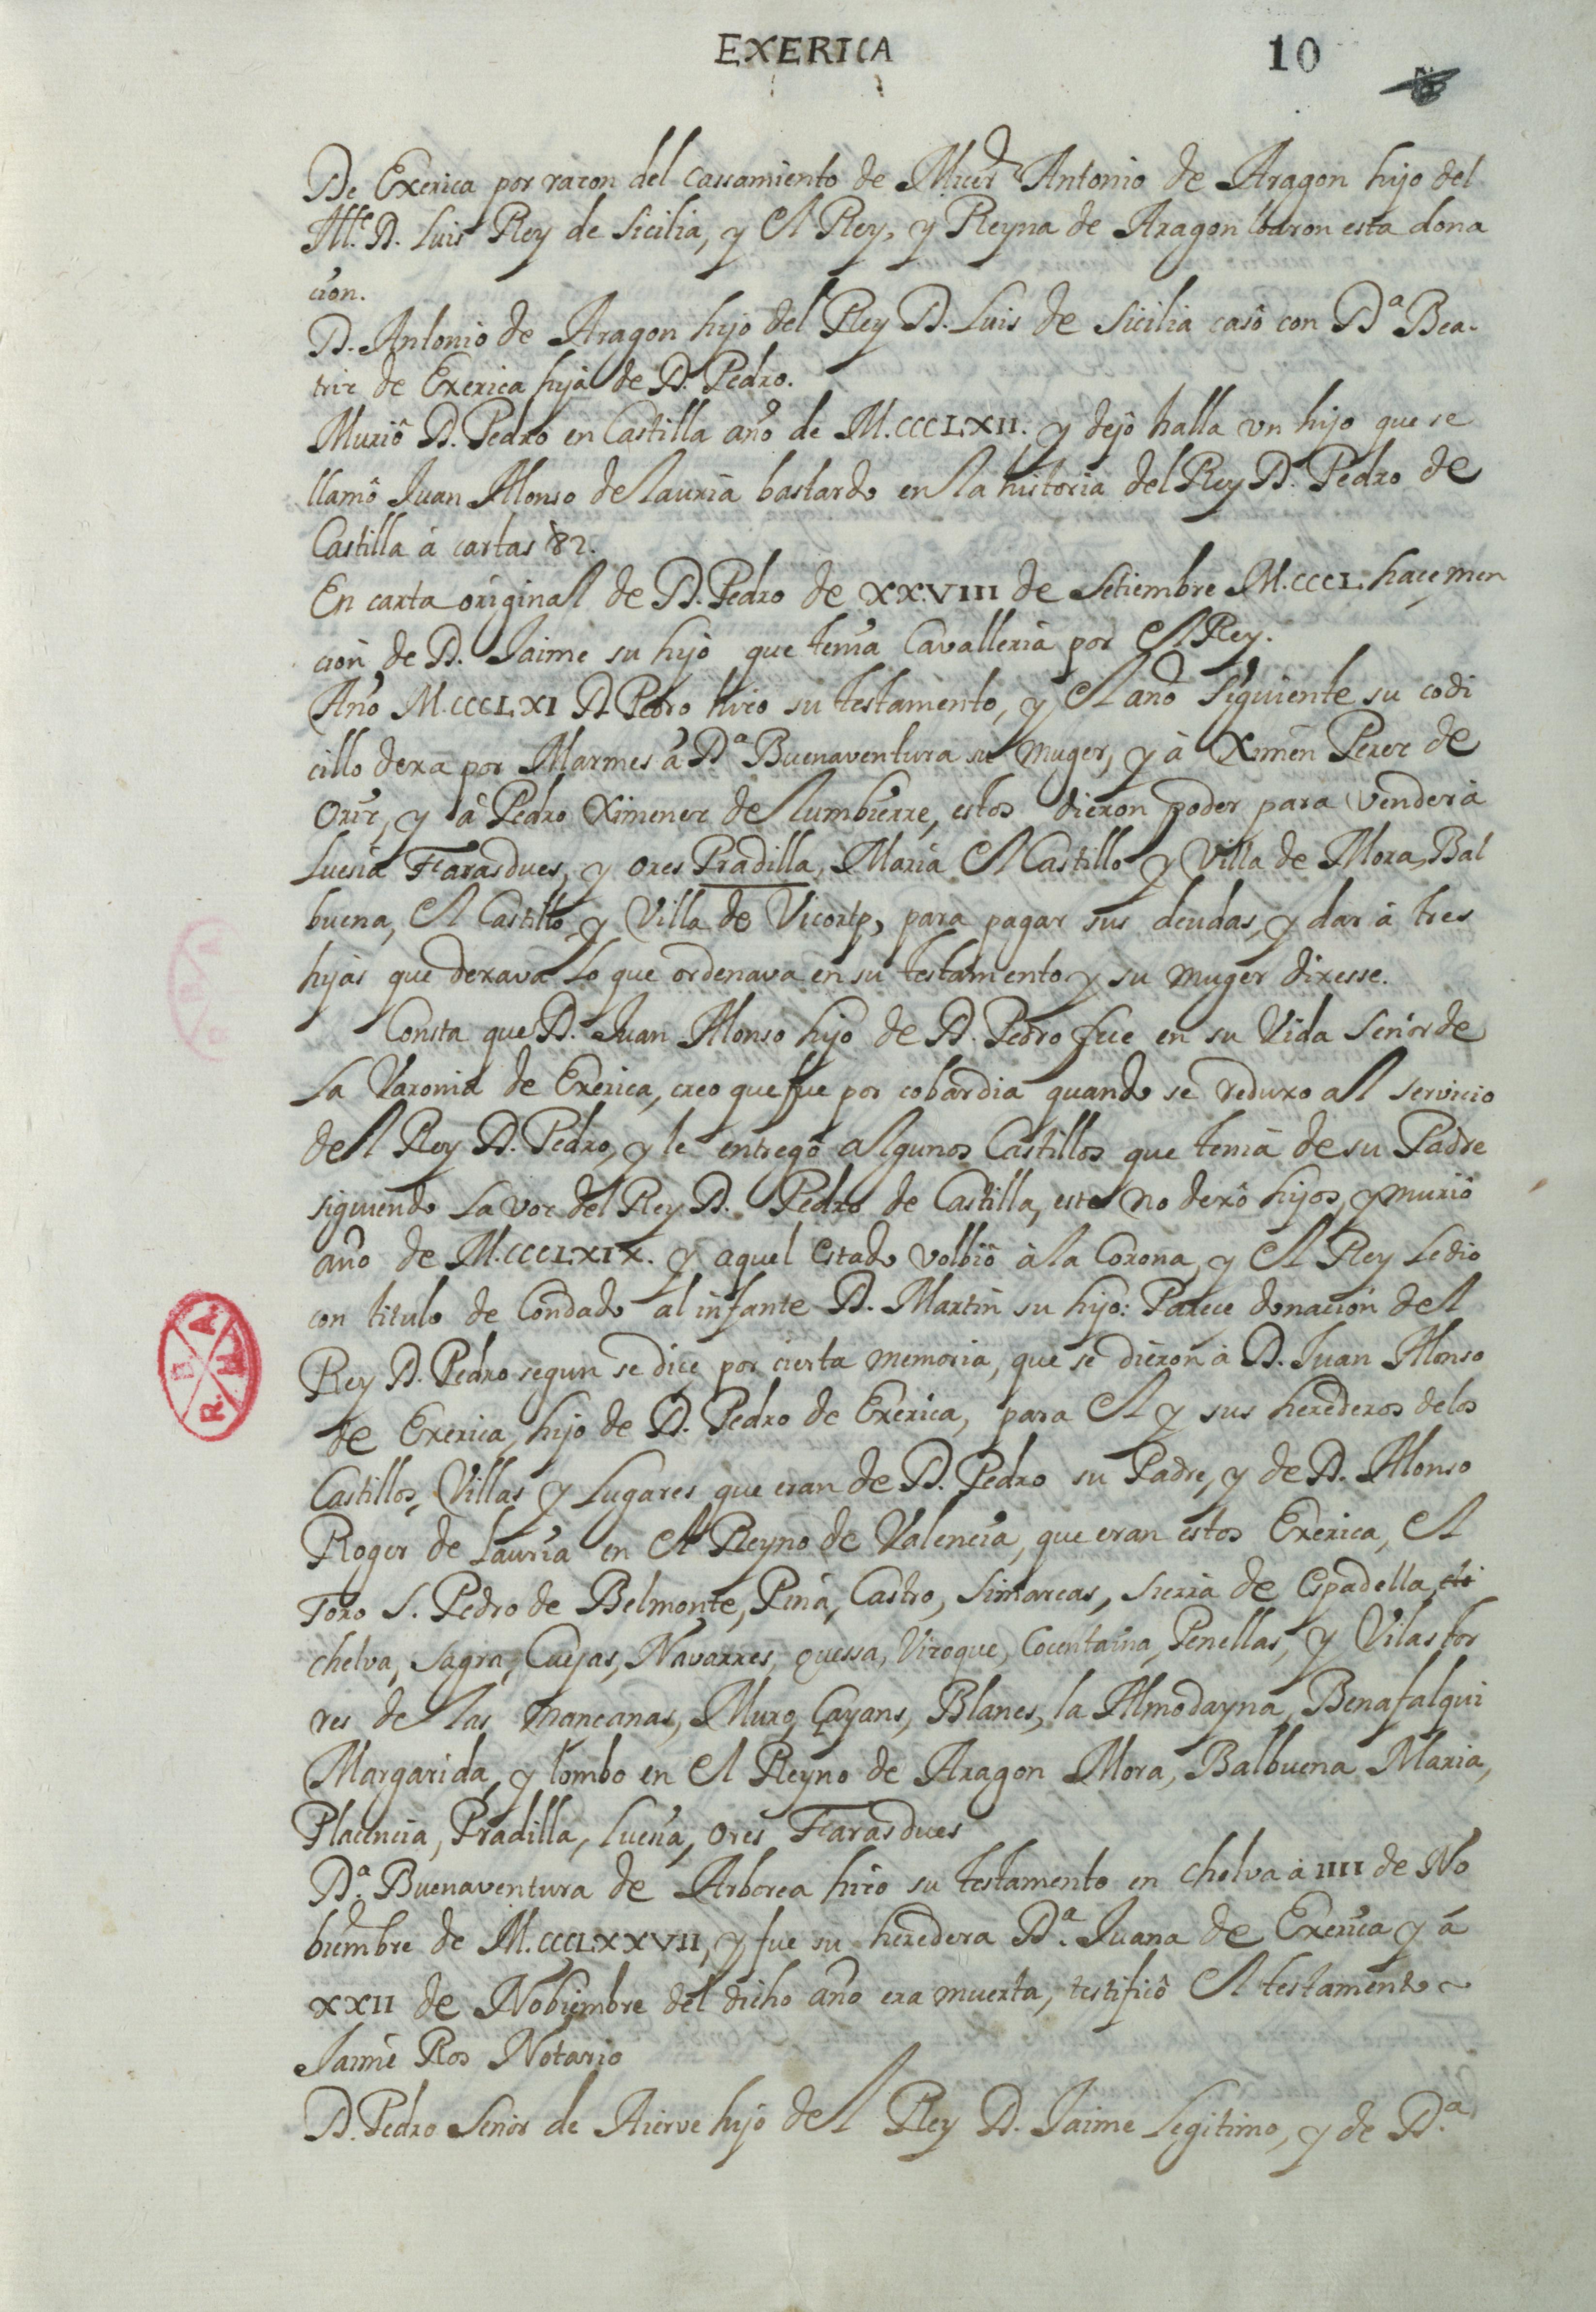 EXERICA
10
De Exerica por razon del cassamiento de Micer Antonio de Aragon hijo del
Ill.e D. Luis Rey de Sicilia, y el Rey, y Reyna de Aragon loaron esta dona
cion.
D. Antonio de Aragon hijo del Rey D. Luis de Sicilia casô con D.ª Bea-
triz de Exerica hija de D. Pedro.
Muriô D. Pedro en Castilla año de M.CCCLXII. y dejô halla vn hijo que se
llamô Juan Alonso de lauria bastardo en la historia del Rey D. Pedro de
Castilla à cartas 82.
En carta original de D. Pedro de XXVIII de Setiembre M.CCCL. haçe men
cion de D. Jaime su hijo que tenia Cavalleria por el Rey.
Año M.CCCLXI D. Pedro hizo su testamento, y el año siguiente su codi
cillo dexa por Marmes à D.ª Buenaventura su muger, y à Ximen Perez de
Oriz, y à Pedro Ximenez de lumbierre, estos dieron poder para vender à
Luesia Farasdues, y ores Pradilla, Maria el Castillo y Villa de Mora, Bal
buena, el Castillo y Villa de Vicortp, para pagar sus deudas, y dar à tres
hijas que dexava lo que ordenava en su testamento y su muger dixesse.
Consta que D. Juan Alonso hijo de D. Pedro fue en su Vida Señor de
la Varonia de Exerica, creo que fue por cobardia quando se reduxo al servicio
del Rey D. Pedro, y le entregô algunos Castillos que tenia de su Padre
siguiendo la voz del Rey D. Pedro de Castilla, este no dexô hijos, y muriô
año de M.CCCLXIX. y aquel estado volbiô à la Corona, y el Rey le dio
con titulo de Condado al infante D. Martin su hijo: Parece donaciôn del
Rey D. Pedro segun se diçe por cierta memoria, que se dieron à D. Juan Alonso
de Exerica, hijo de D. Pedro de Exerica, para el y sus herederos de los
Castillos, Villas y Lugares que eran de D. Pedro su Padre, y de D. Alonso
Roger de Lauria en el Reyno de Valencia, que eran estos Exerica, el
Toro S. Pedro de Belmonte, Pina, Castro, Simarcas, sierra de Espadella
chelva, Sagra, Cuejas, Navarres, Quessa, Viroque, Cocentaina, Penellas, y Vilas tor
res de las mancanas, Muro, Gayans, Blanes, la Almodayna, Benafalqui
Margarida, y tombo en el Reyno de Aragon Mora, Balbuena Maria,
Placencia, Pradilla, Luesia, ores Farasdues
D.ª Buenaventura de Arborea hizo su testamento en chelva à IIII de No
biembre de M.CCCLXXVII, y fue su heredera D.ª Juana de Exerica y à
XXII de Nobiembre del dicho año era muerta, testificô el testamento
Jaime Ros Notario
D. Pedro Señor de Aierve hijo del Rey D. Jaime Legitimo, y de D.ª